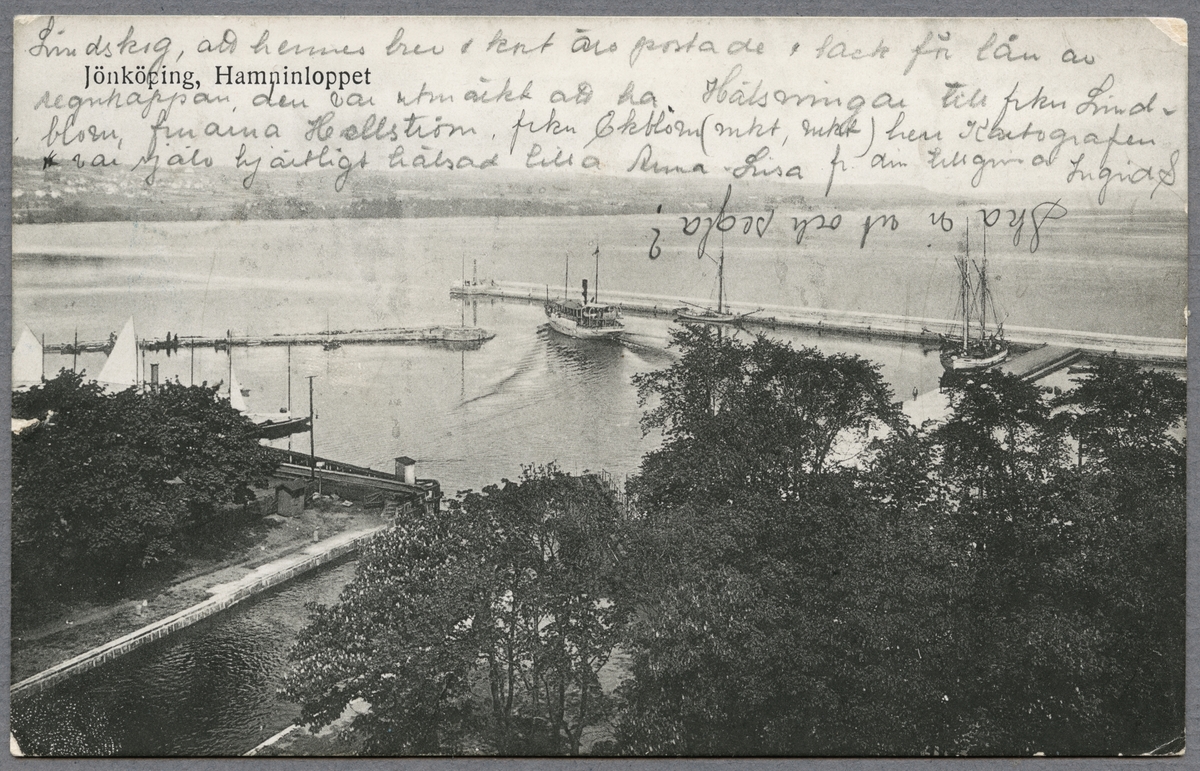 Lindskog, att hennes brev & kort äro postade & tack för lån av
Jönköping, Hamninloppet
regnkappan, den var utmärkt att ha. Hälsningar till frkn Lind-
blom, fruarna Hellström, frkn Ekblom (mkt, mkt) herr Kartografen
& var själv hjärtligt hälsad lilla Anna-Lisa fr. din tillgivna Ingrid S
Ska vi ut och segla?